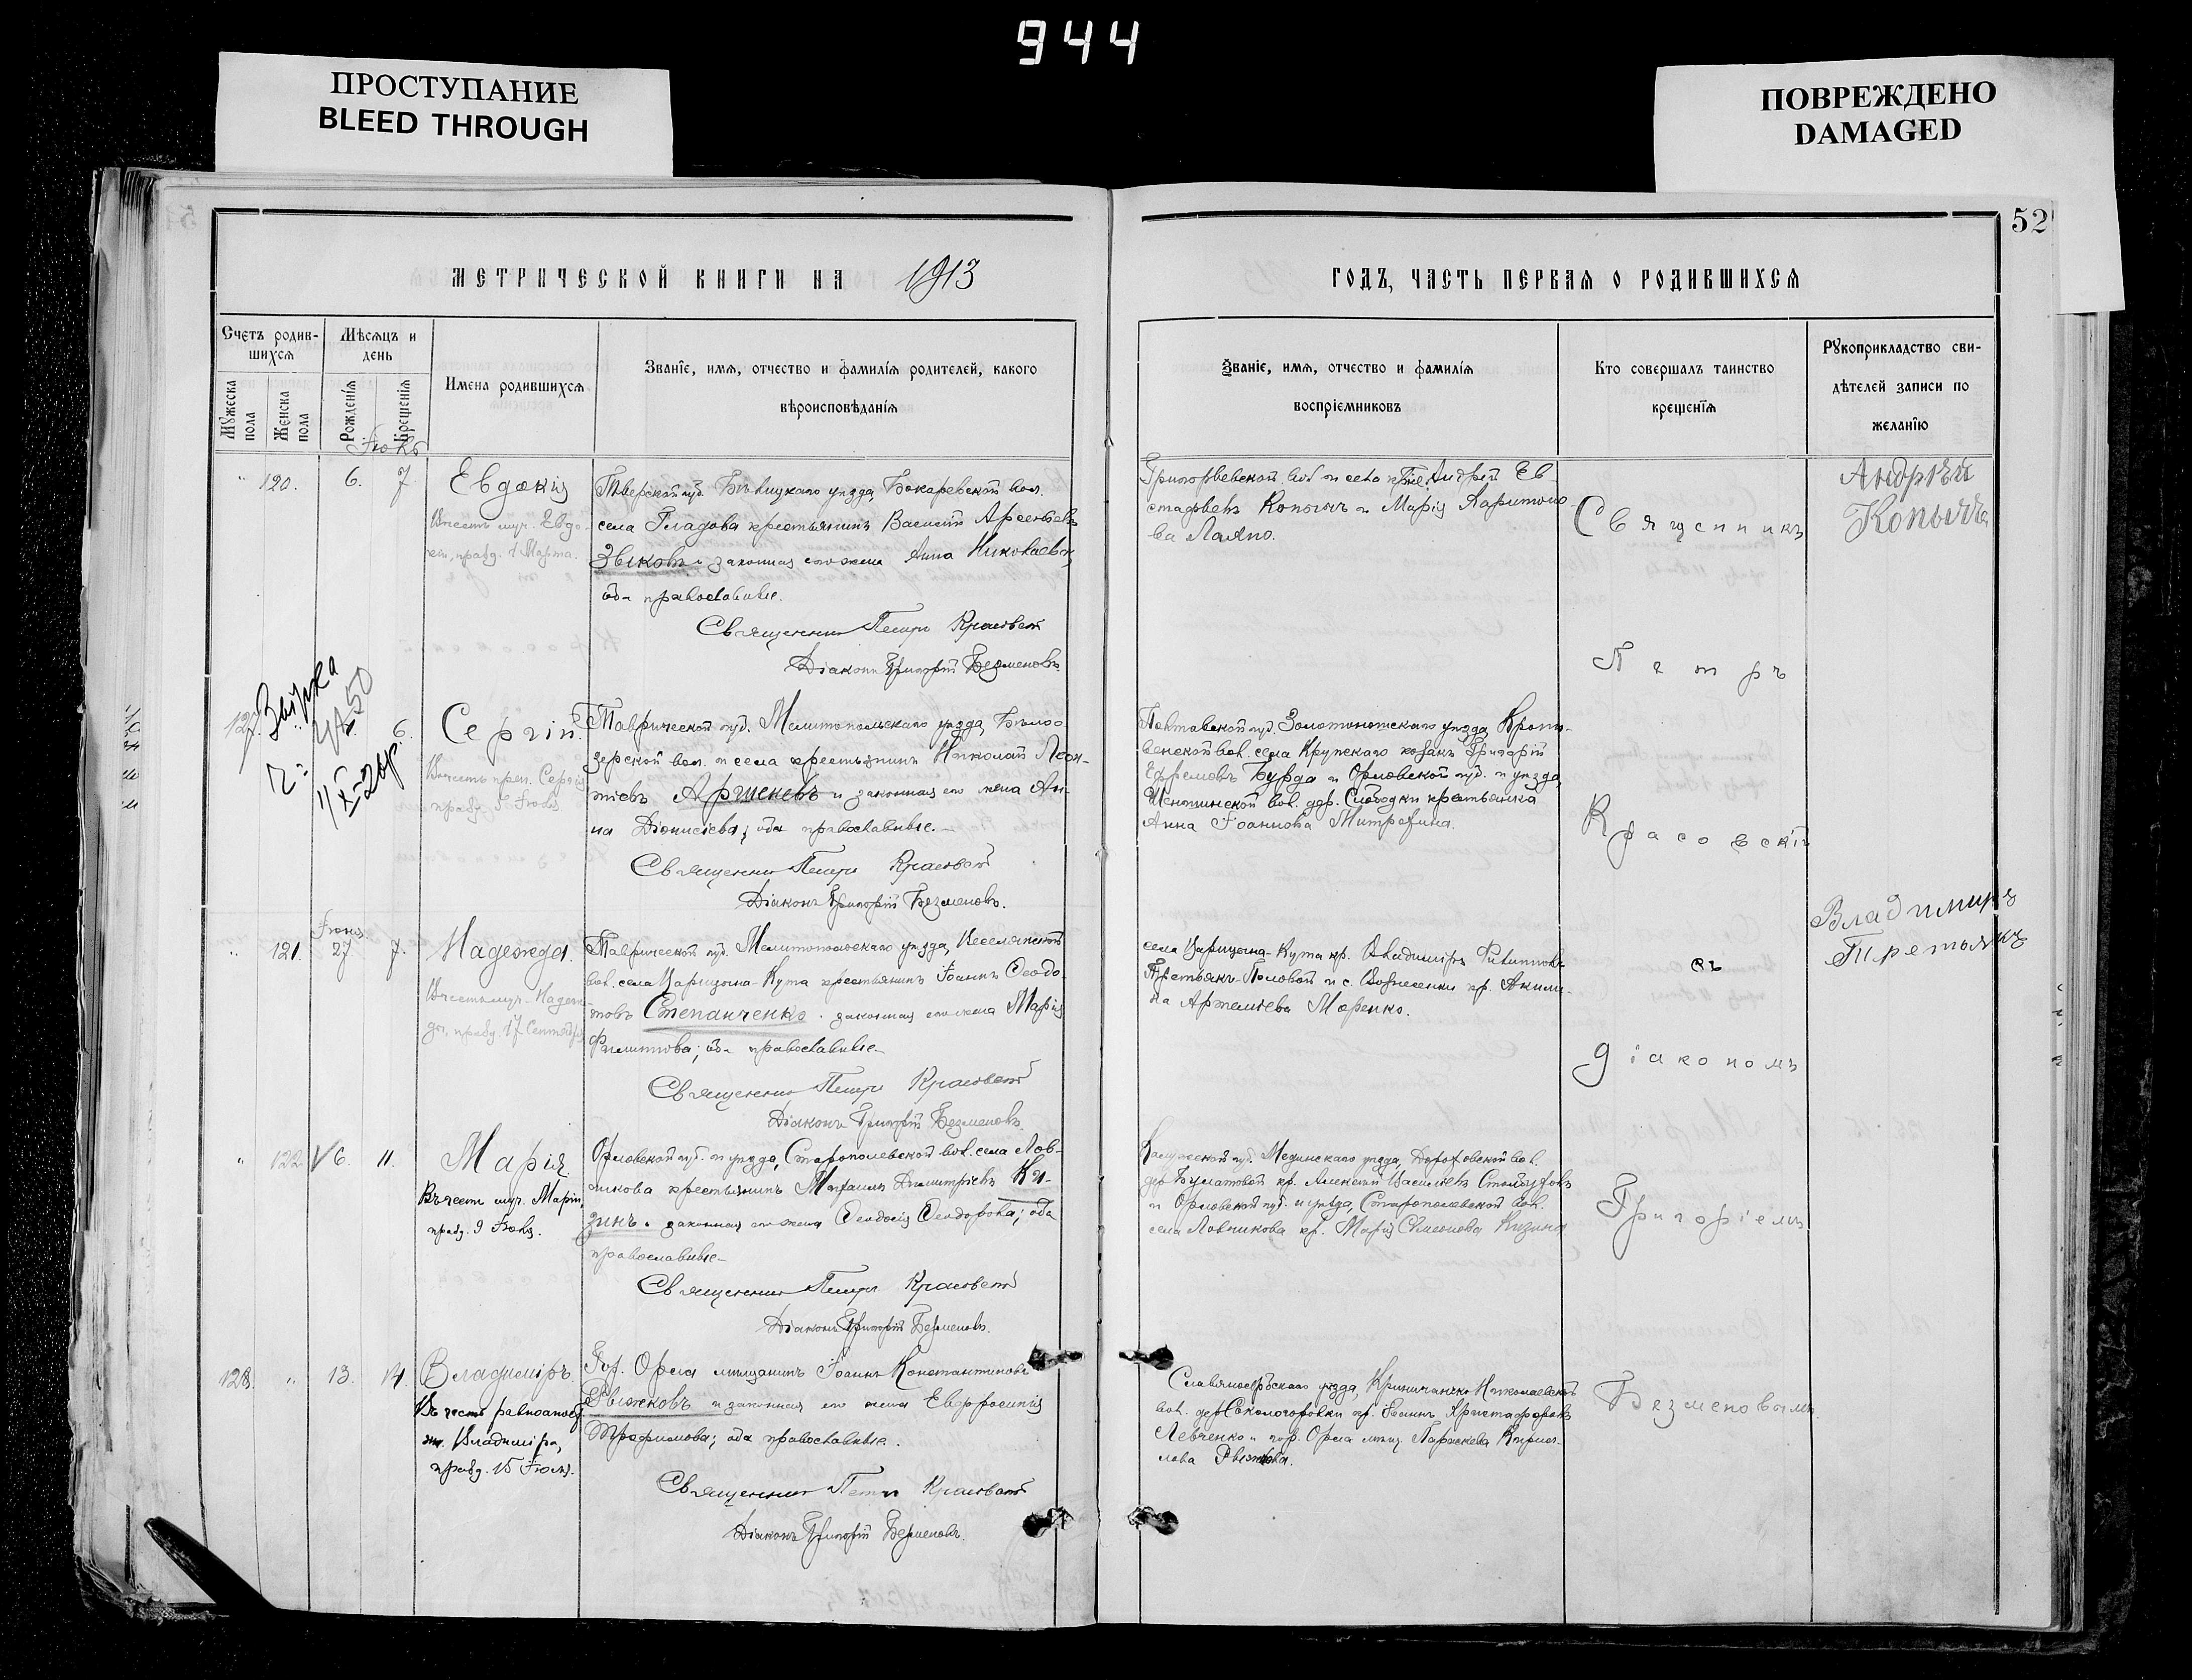 944
ПРОСТУПАНИЕ
BLEED THROUGH
ПОВРЕЖДЕНО
DAMAGED
52
МЕТРИЧЕСКОЙ КНИГИ НА 1913
ГОДЪ, ЧАСТЬ ПЕРВАЯ О РОДИВШИХСЯ
Счетъ родив-
шихся
Мѣсяцъ и
день
Мужеска
пола
Женска
пола
Рожденія
Крещенія
Имена родившихся
Званіе, имя, отчество и фамилія родителей, какого
вѣроисповѣданія
Званіе, имя, отчество и фамилія
воспріемниковъ
Кто совершалъ таинство
крещенія
Рукоприкладство сви-
дѣтелей записи по
желанію
120. 6. 7
Евдокія
Въ честь муч. Евдо-
кіи, празд. 1 Марта.
Тверской губ. уѣзда, вол.
села Гладова крестьянинъ Василій Арсеньевъ
Зыковъ и законная его жена Анна Николаевна,
оба православные.
Священникъ Петръ Красовскій
Діаконъ Григорій Безменовъ.
Григорьевской вол. и села Андрей Ев-
стафьевъ Копычъ и Марія Харитоно-
ва
Андрѣй
Копычъ
127. 6.
Сергій.
Въ честь преп. Сергія
празд. 5 Іюля
Таврической губ. Мелитопольскаго уѣзда, Бѣлоо-
зерской вол. и села крестьянинъ Николай Леон-
тіевъ и законная его жена Ан-
на Діонисіева; оба православные.
Священникъ Петръ Красовскій
Діаконъ Григорій Безменовъ.
Полтавской губ. Золотоношскаго уѣзда, Кропи-
венской вол. села Крупскаго козакъ Григорій
Ефремовъ Бурда и Орловской губ. и уѣзда,
вол. дер. Слободки крестьянка
Анна Іоаннова Митрохина.
121. Іюня 27. 7.
Надежда.
Въ честь муч. Надеж-
ды, празд. 17 Сентября
Таврической губ. Мелитопольскаго уѣзда, Веселянской
вол. села Царицына-Кута крестьянинъ Іоаннъ Ѳеодо-
товъ Степанченко и законная его жена Марія
Филиппова; оба православные.
Священникъ Петръ Красовскій
Діаконъ Григорій Безменовъ.
села Царицына-Кута кр. Владиміръ Филипповъ
Третьякъ-Половой и с. Вознесенки кр. Акили-
на Артеміева Моренко.
Владимиръ
Третьякъ
122. 6. 11.
Марія.
Въ честь муч. Маріи,
празд. 9 Іюня.
Орловской губ. и уѣзда, Старополевской вол. села Лов-
чикова крестьянинъ Михаилъ Димитріевъ Ки-
зинъ и законная его жена Ѳеодосія Ѳеодорова; оба
православные
Священникъ Петръ Красовскій
Діаконъ Григорій Безменовъ.
Калужской губ. Медынскаго уѣзда, вол.
дер. Булатовой кр. Алексій Васильевъ
и Орловской губ. и уѣзда, Старополевской вол.
села Ловчикова кр. Марія Симеонова Кизина
128. 13. 14.
Владиміръ.
Въ честь равноапост.
кн. Владиміра,
празд. 15 Іюля.
Гор. Орла мѣщанинъ Іоаннъ Константиновъ
и законная его жена Евфросинія
Трофимова; оба православные.
Священникъ Петръ Красовскій
Діаконъ Григорій Безменовъ.
Славяносербскаго уѣзда, Криничанско-Николаевской
вол. дер. Сокологоровки кр. Іоаннъ Христофоровъ
Левченко и гор. Орла мѣщ. Параскева Кирил-
лова
Священникъ
Петръ
Красовскій
съ
діакономъ
Григоріемъ
Безменовымъ.